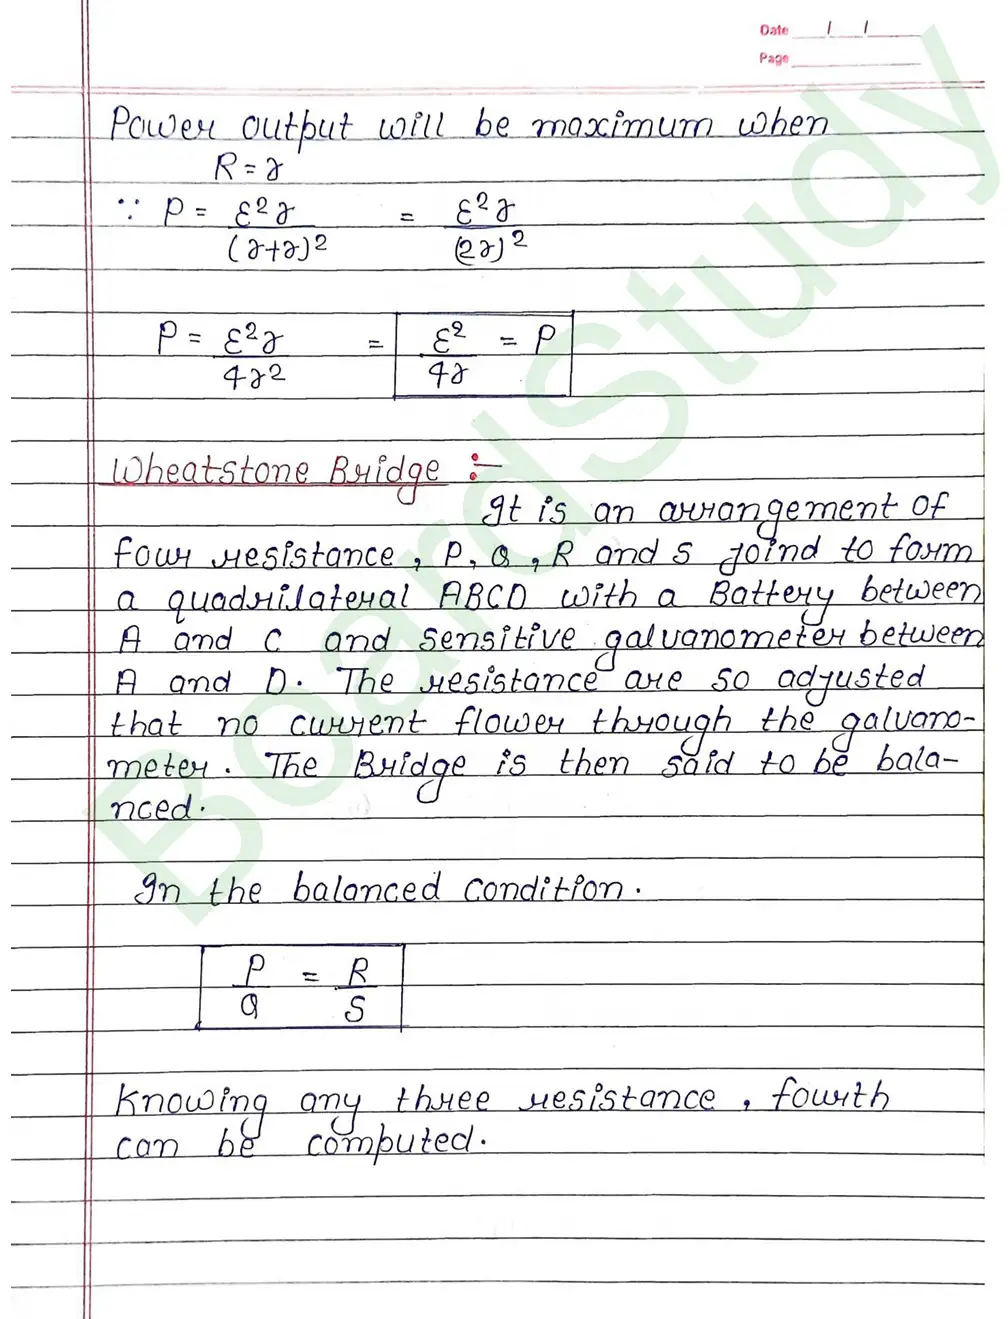 Date / /
Page
Power output will be maximum when
R = r
∵ P = ε²r / (r+r)² = ε²r / (2r)²
P = ε²r / 4r² = ε² / 4r = P
Wheatstone Bridge :-
It is an arrangement of
four resistance, P, Q, R and S joind to form
a quadrilateral ABCD with a Battery between
A and C and sensitive galvanometer between
A and D. The resistance are so adjusted
that no current flower through the galvano-
meter. The Bridge is then said to be bala-
nced.
In the balanced condition.
P / Q = R / S
Knowing any three resistance, fourth
can be computed.
BoardStudy